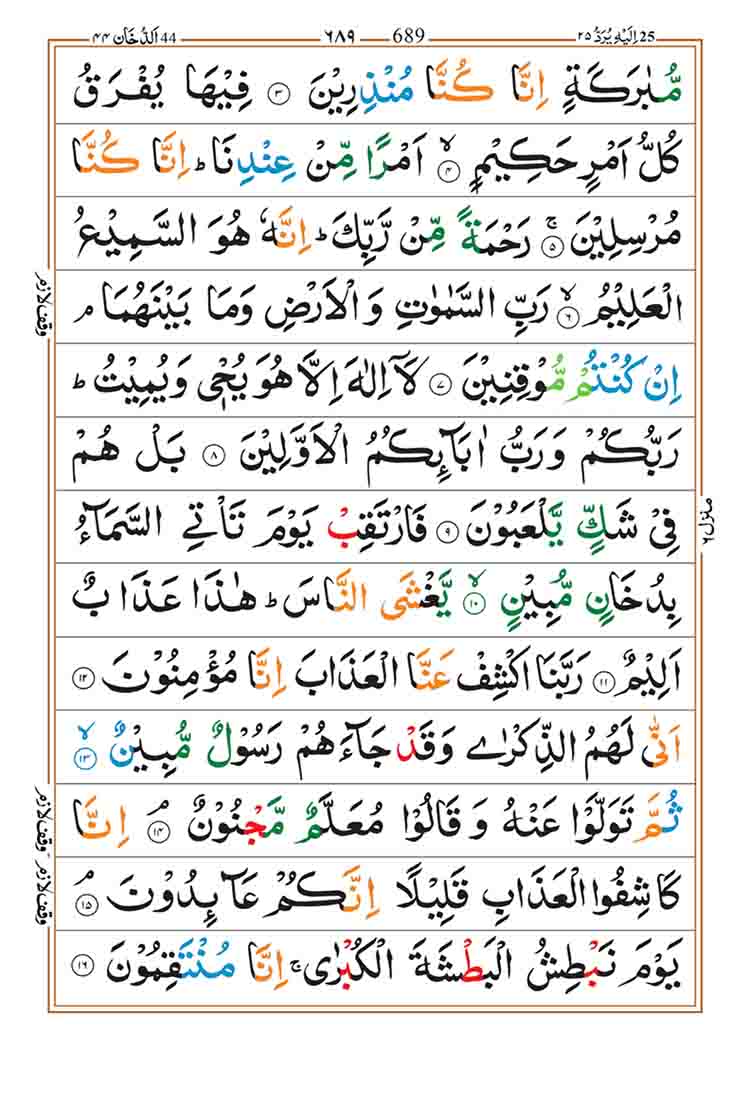 اَلدُّخَان ٤٤ 44 ٦٨٩ 689 اِلَیْهِ یُرَدُّ ٢٥ 25
مُّبٰرَكَةٍ اِنَّا كُنَّا مُنْذِرِیْنَ ﴿٣﴾ فِیْهَا یُفْرَقُ
كُلُّ اَمْرٍ حَكِیْمٍ ﴿٤﴾ۙ اَمْرًا مِّنْ عِنْدِنَا ؕ اِنَّا كُنَّا
مُرْسِلِیْنَ ﴿٥﴾ۚ رَحْمَةً مِّنْ رَّبِّكَ ؕ اِنَّهٗ هُوَ السَّمِیْعُ
الْعَلِیْمُ ﴿٦﴾ۙ رَبِّ السَّمٰوٰتِ وَ الْاَرْضِ وَمَا بَیْنَهُمَا ۘ
اِنْ كُنْتُمْ مُّوْقِنِیْنَ ﴿٧﴾ لَاۤ اِلٰهَ اِلَّا هُوَ یُحْیٖ وَیُمِیْتُ ؕ
رَبُّكُمْ وَرَبُّ اٰبَآئِكُمُ الْاَوَّلِیْنَ ﴿٨﴾ بَلْ هُمْ
فِیْ شَكٍّ یَّلْعَبُوْنَ ﴿٩﴾ فَارْتَقِبْ یَوْمَ تَاْتِی السَّمَآءُ
بِدُخَانٍ مُّبِیْنٍ ﴿١٠﴾ۙ یَّغْشَی النَّاسَ ؕ هٰذَا عَذَابٌ
اَلِیْمٌ ﴿١١﴾ رَبَّنَا اكْشِفْ عَنَّا الْعَذَابَ اِنَّا مُؤْمِنُوْنَ ﴿١٢﴾
اَنّٰی لَهُمُ الذِّكْرٰی وَقَدْ جَآءَهُمْ رَسُوْلٌ مُّبِیْنٌ ﴿١٣﴾ۙ
ثُمَّ تَوَلَّوْا عَنْهُ وَ قَالُوْا مُعَلَّمٌ مَّجْنُوْنٌ ﴿١٤﴾ۘ اِنَّا
كَاشِفُوا الْعَذَابِ قَلِیْلًا اِنَّكُمْ عَآئِدُوْنَ ﴿١٥﴾ۘ
یَوْمَ نَبْطِشُ الْبَطْشَةَ الْكُبْرٰی ۚ اِنَّا مُنْتَقِمُوْنَ ﴿١٦﴾
وقف لازم
منزل ٦
وقف لازم
وقف لازم